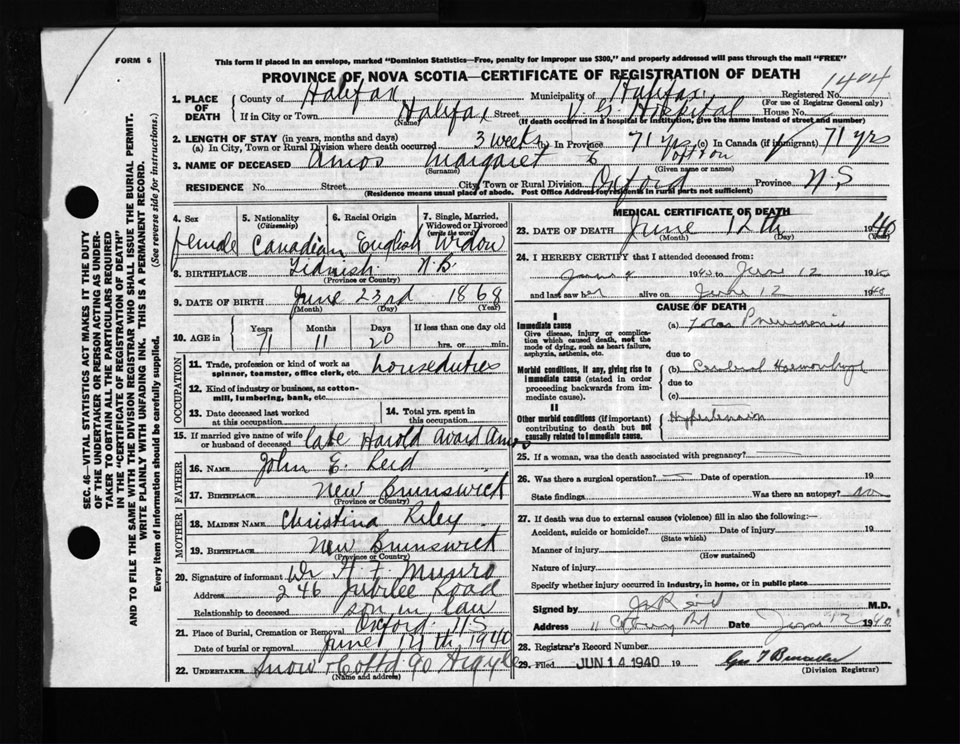 FORM 6
This form if placed in an envelope, marked "Dominion Statistics—Free, penalty for improper use $300," and properly addressed will pass through the mail "FREE"
PROVINCE OF NOVA SCOTIA—CERTIFICATE OF REGISTRATION OF DEATH
1404
1. PLACE OF DEATH County of Halifax Municipality of Halifax Registered No.
(For use of Registrar General only)
If in City or Town Halifax Street V. G. Hospital House No.
(Name) (If death occurred in a hospital or institution, give the name instead of street and number)
2. LENGTH OF STAY (in years, months and days)
(a) In City, Town or Rural Division where death occurred 3 weeks (b) In Province 71 yrs (c) In Canada (if immigrant) 71 yrs
3. NAME OF DECEASED Amos Margaret E
(Surname) (Given name or names)
RESIDENCE No. Street City, Town or Rural Division Oxford Province N.S
(Residence means usual place of abode. Post Office Address for residents in rural parts not sufficient)
4. Sex female
5. Nationality (Citizenship) Canadian
6. Racial Origin English
7. Single, Married, Widowed or Divorced (write the word) Widow
8. BIRTHPLACE Tidnish. N.B.
(Province or Country)
9. DATE OF BIRTH June 23rd 1868
(Month) (Day) (Year)
10. AGE in Years 71 Months 11 Days 20 If less than one day old hrs. or min.
OCCUPATION
11. Trade, profession or kind of work as spinner, teamster, office clerk, etc. houseduties
12. Kind of industry or business, as cotton-mill, lumbering, bank, etc.
13. Date deceased last worked at this occupation.
14. Total yrs. spent in this occupation.
15. If married give name of wife or husband of deceased late Harold Avard Amos
FATHER
16. NAME John E. Reid
17. BIRTHPLACE New Brunswick
(Province or Country)
MOTHER
18. MAIDEN NAME Christina Riley
19. BIRTHPLACE New Brunswick
(Province or Country)
20. Signature of informant Wr H. F. Munro
Address 246 Jubilee Road
Relationship to deceased son in law
21. Place of Burial, Cremation or Removal Oxford. N S
Date of burial or removal June 14th, 1940
22. UNDERTAKER Snow & Co Ltd 90 Argyle
(Name and address)
MEDICAL CERTIFICATE OF DEATH
23. DATE OF DEATH June 12th 1940
(Month) (Day) (Year)
24. I HEREBY CERTIFY that I attended deceased from:
June 4 1940 to June 12 1940
and last saw her alive on June 12 1940
CAUSE OF DEATH
I
Immediate cause
Give disease, injury or complication which caused death, not the mode of dying, such as heart failure, asphyxia, asthenia, etc.
(a) Lobar Pneumonia
due to
Morbid conditions, if any, giving rise to immediate cause (stated in order proceeding backwards from immediate cause).
(b) Cerebral Haemorrhage
due to
(c)
II
Other morbid conditions (if important) contributing to death but not causally related to immediate cause.
Hypertension
25. If a woman, was the death associated with pregnancy?
26. Was there a surgical operation? Date of operation 19
State findings Was there an autopsy? no
27. If death was due to external causes (violence) fill in also the following:—
Accident, suicide or homicide? Date of injury 19
(State which)
Manner of injury
(How sustained)
Nature of injury
Specify whether injury occurred in industry, in home, or in public place
Signed by M.D.
Address Date June 12 1940
28. Registrar's Record Number
29. Filed JUN 14 1940 19
(Division Registrar)
SEC. 46—VITAL STATISTICS ACT MAKES IT THE DUTY OF THE UNDERTAKER OR PERSON ACTING AS UNDERTAKER TO OBTAIN ALL THE PARTICULARS REQUIRED IN THE "CERTIFICATE OF REGISTRATION OF DEATH" AND TO FILE THE SAME WITH THE DIVISION REGISTRAR WHO SHALL ISSUE THE BURIAL PERMIT.
WRITE PLAINLY WITH UNFADING INK. THIS IS A PERMANENT RECORD.
Every item of information should be carefully supplied. (See reverse side for instructions.)